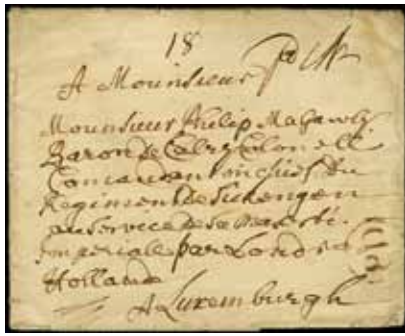 18
A Mounsieur
Mounsieur Philip Magawly
Baron de Calry Colonell
Comandant en chief du
Regiment de Sickengen
au Service de Sa Majesti
Imperiale par Londres
Holland
A Luxemburgh